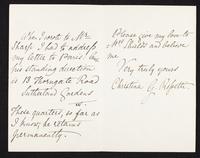 When I wrote to Mr.
Sharp I had to address
my letter to Paris: but
his standing direction
is 13 Thorngate Road
Sutherland Gardens
W.
These quarters, so far as
I know, he retains
permanently.
Please give my love to
Mrs. Shields and believe
me
Very truly yours
Christina G. Rossetti